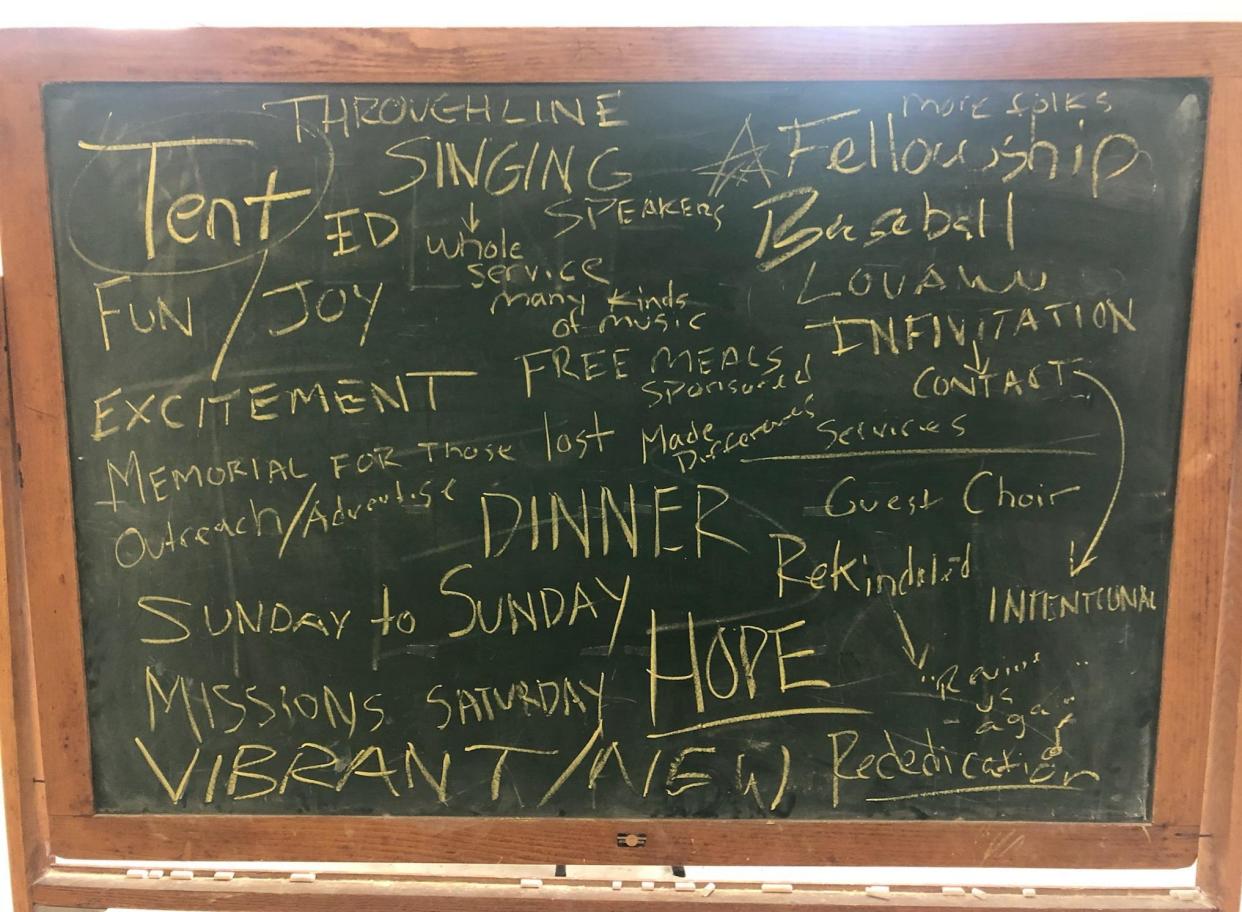 THROUGHLINE
more folks
Tent
SINGING
Fellowship
ED
whole
service
SPEAKERS
Baseball
FUN / JOY
many kinds
of music
LOUANN
INFIVITATION
FREE MEALS
sponsored
CONTACT
EXCITEMENT
MEMORIAL FOR Those lost
Made
Differences
Services
Outreach/Advertise
DINNER
Guest Choir
Rekindled
SUNDAY to SUNDAY
INTENTIONAL
HOPE
us
MISSIONS SATURDAY
VIBRANT/NEW
Rededication